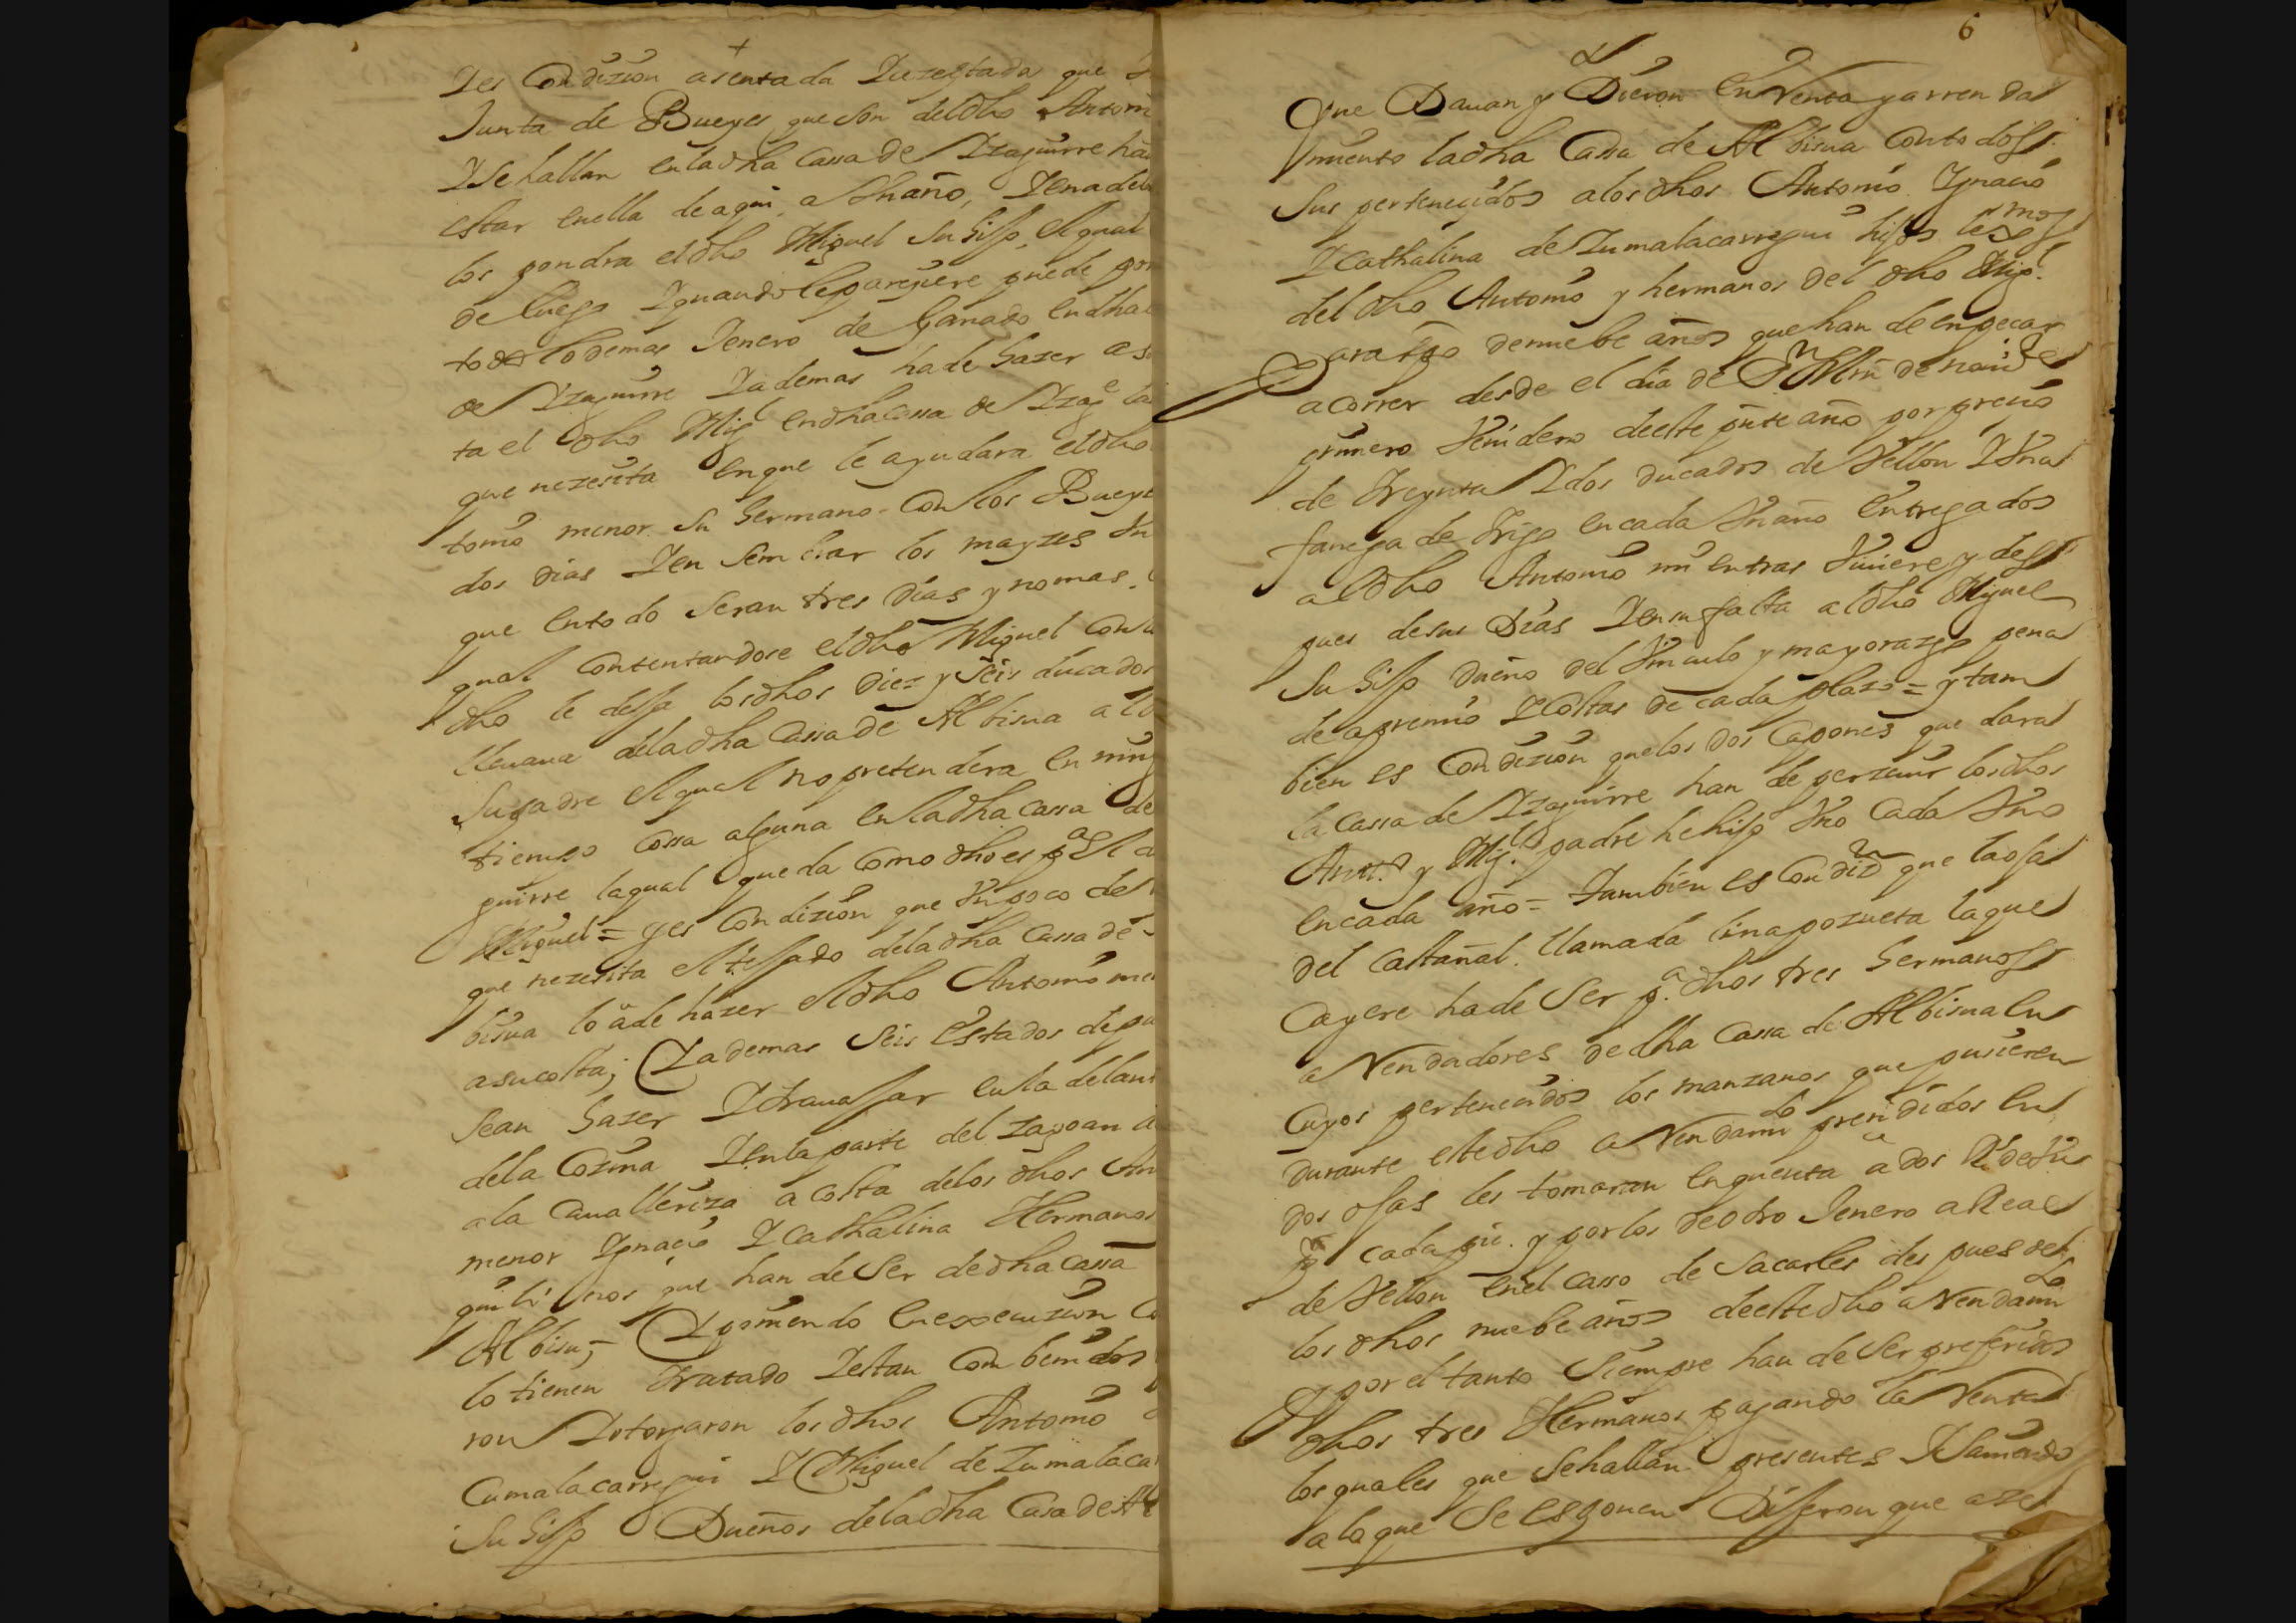 +
Y es Condizion asentada Y azeptada que
Junta de Bueyes que son del dho Antoni
Y se hallan en la dha Cassa de Yzaguirre han
estar en ella de aqui a Un año, Y en adela
los pondra el dho Miguel su hijo, el qual
de luego Y quando le pareziere puede pon
todo lo demas Jenero de Ganado en dha
de Yzaguirre Y ademas ha de hazer a s
ta el dho Migl en dha Cassa de Yzage la
que nezesita en que le ayudara el dho
tonio menor su hermano con los Bueye
dos dias Y en sembrar los mayzes Un
que en todo seran tres dias y no mas.
qual contentandose el dho Miguel con
dho le dessa los dhos diez y seis ducados
lleuaua de la dha Cassa de Albisua a
su padre el qual no pretendera en ning
tiempo cossa alguna en la dha cassa de
guirre la qual queda como dho es pa el
Miguel = y es Condizion que Un poco de
que nezesita el tessado de la dha Cassa de
bisua lo a de hazer el dho Antonio me
a su costa; Y ademas seis estados de pa
sean hazer Y trauassar en la delant
de la Cozina Y en la parte del zaguan
a la Caualleriza a costa de los dhos An
menor Ygnacio Y Cathalina Hermanos
quilinos que han de ser de dha cassa
Albisu; Y poniendo en execuzion
lo tienen tratado Y estan Conbenidos
ron Y otorgaron los dhos Antonio
Cumalacarregui Y Miguel de Zumalaca
su hijo Dueños de la dha Casa de Al
6
Que Dauan y Dieron en Renta y arrenda
miento la dha Casa de Albisua con todos
sus pertenecidos a los dhos Antonio Ygnacio
Y Cathalina de Zumalacarregui hijos lexmos
del dho Antonio y hermanos del dho Migl
Para tpo de nuebe años que han de enpezar
a correr desde el dia de Sn Mrn de nouie
primero Venidero de este pnte año por precio
de treynta Y dos ducados de Vellon Y Una
fanega de trigo en cada Un año Entregados
al dho Antonio mientras Viuiere y des
pues de sus Dias Y en su falta al dho Miguel
su hijo dueño del Vinculo y mayorazgo pena
de apremio Y costas de cada plazo = y tam
bien es Condizion que los dos Capones que dara
la Cassa de Yzaguirre han de perzeuir los dhos
Anto y Migl padre he hijo Vno Cada Vno
en cada año = tambien es Condizn que la oja
del Castañal llamada linapozueta la que
Cayere ha de ser pa dhos tres hermanos
arrendadores de dha Cassa de Albisua en
cuyos pertenecidos los manzanos que pusieren
durante este dho arrendamto prendidos en
dos ojas les tomaran en quenta a dos Rs de
cada pie. y por los de otro Jenero a Real
de Vellon en el casso de sacarles despues de
los dhos nuebe años de este dho arrendamto
Y por el tanto siempre han de ser preferidos
dhos tres Hermanos pagando la Renta
los quales que se hallan presentes
a lo que se espone Dijeron que aze